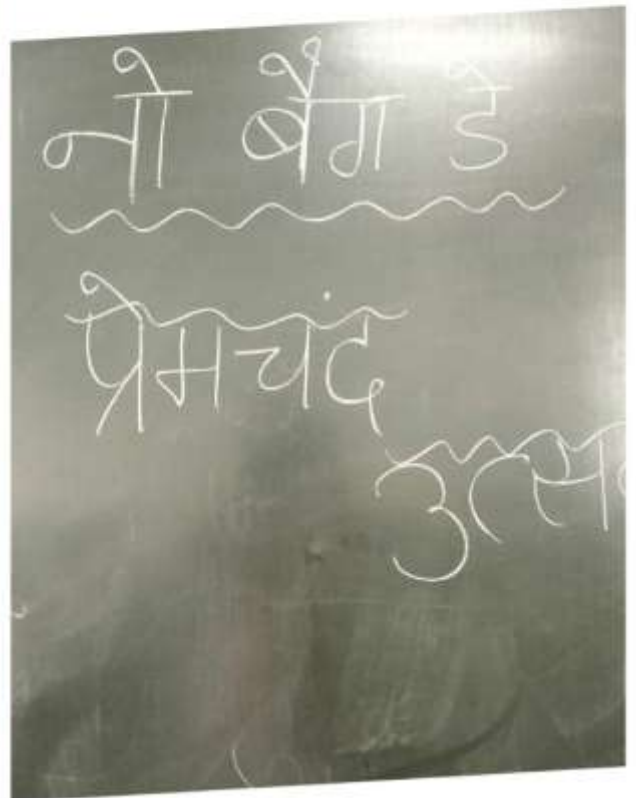 नो बैग डे
प्रेमचंद
उत्सव